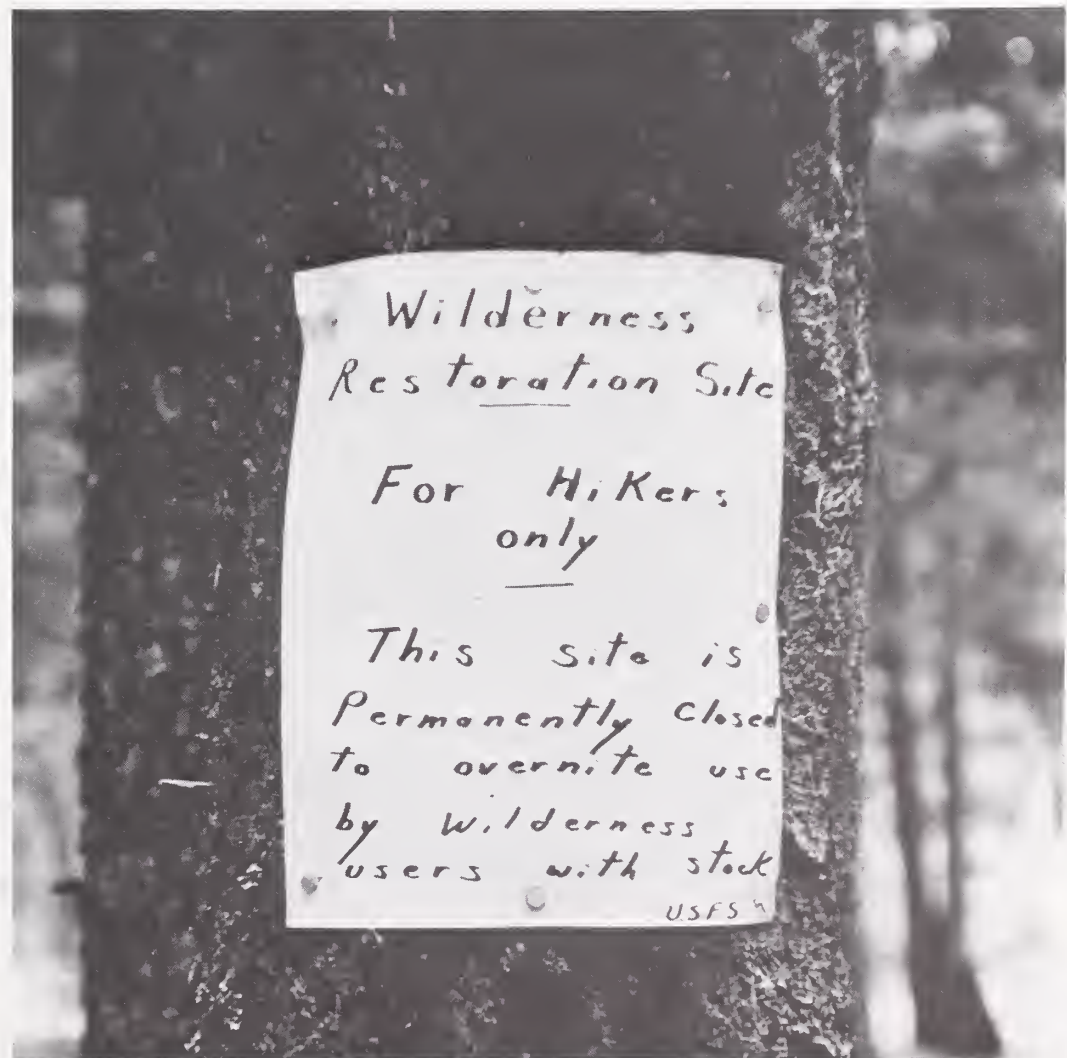 Wilderness
Restoration Site
For Hikers
only
This site is
Permanently Closed
to overnite use
by Wilderness
users with stock
USFS